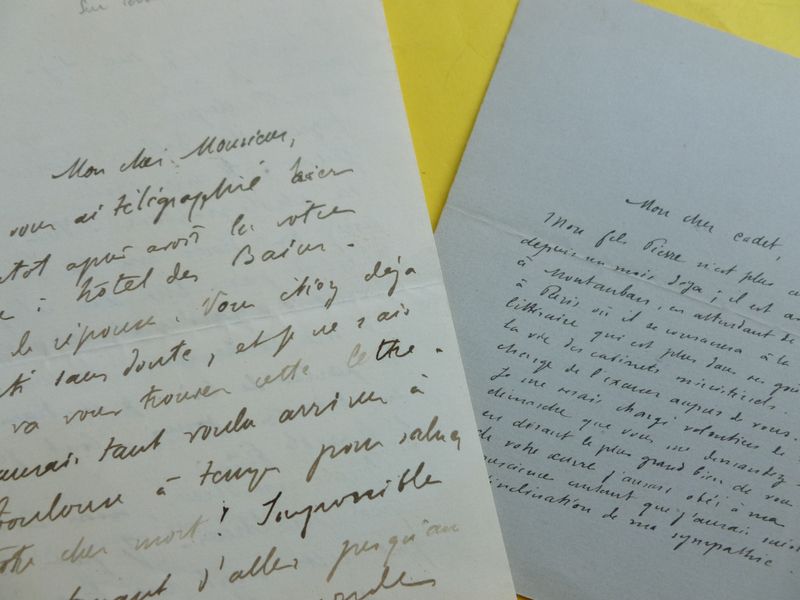 Sur
Mon cher Monsieur,
vous ai télégraphié hier
après avoir lu votre
: hôtel des Bains.
de réponse. Vous étiez déjà
sans doute, et je ne sais
va vous trouver cette lettre.
aurais tant voulu arriver à
Toulouse à temps pour saluer
cher mort ! Impossible
d'aller jusqu'au
Mon cher cadet,
Mon fils Pierre n'est plus
depuis un mois déjà ; il est
à Montauban, en attendant de
à Paris où il se consacrera à la
littéraire qui est plus dans ses
la vie des cabinets ministériels.
charge de l'excuser auprès de vous.
Je me serais chargé volontiers de
démarche que vous me demandez
en disant le plus grand bien de vous
de votre œuvre j'aurais obéi à ma
conscience autant que j'aurais suivi
inclination de ma sympathie.